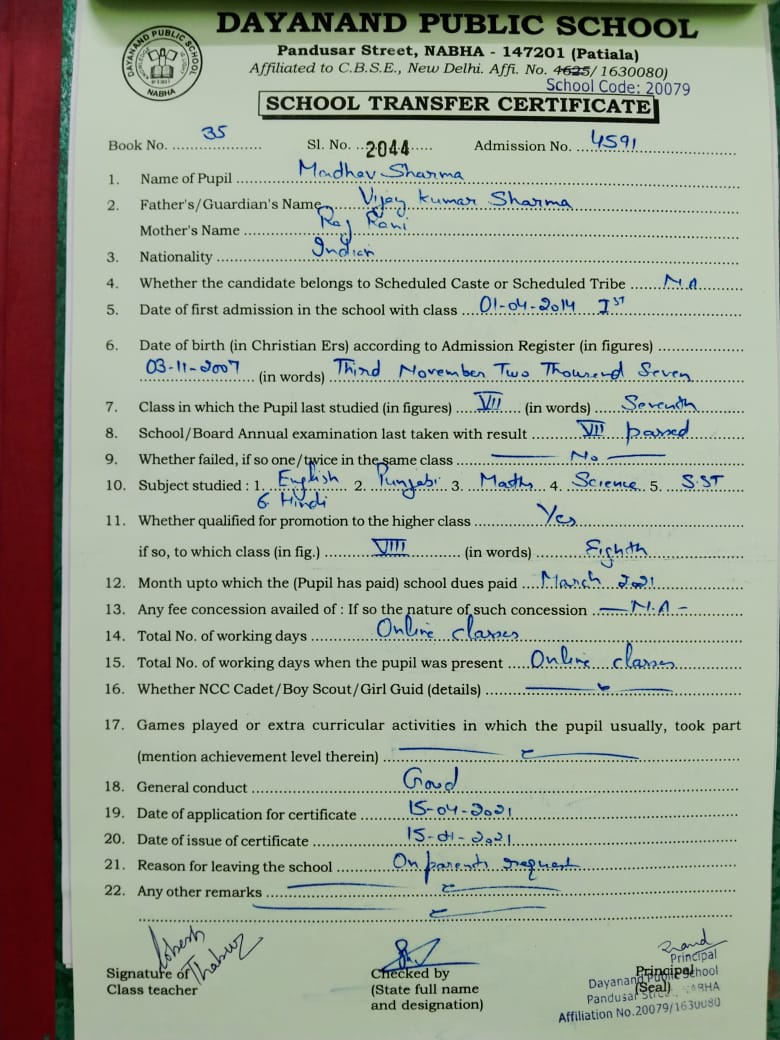 DAYANAND PUBLIC SCHOOL
Pandusar Street, NABHA - 147201 (Patiala)
Affiliated to C.B.S.E., New Delhi. Affi. No. 4625/1630080)
School Code: 20079
DAYANAND PUBLIC SCHOOL
NABHA
SCHOOL TRANSFER CERTIFICATE
Book No. 35 Sl. No. 2044 Admission No. 4591
1. Name of Pupil Madhav Sharma
2. Father's/Guardian's Name Vijay Kumar Sharma
Mother's Name Raj Rani
3. Nationality Indian
4. Whether the candidate belongs to Scheduled Caste or Scheduled Tribe N.A
5. Date of first admission in the school with class 01-04-2014 IST
6. Date of birth (in Christian Ers) according to Admission Register (in figures)
03-11-2007 (in words) Third November Two Thousend Seven
7. Class in which the Pupil last studied (in figures) VII (in words) Seventh
8. School/Board Annual examination last taken with result VII passed
9. Whether failed, if so one/twice in the same class — No —
10. Subject studied : 1. English 2. Punjabi 3. Maths 4. Science 5. S.ST
6. Hindi
11. Whether qualified for promotion to the higher class Yes
if so, to which class (in fig.) VIII (in words) Eighth
12. Month upto which the (Pupil has paid) school dues paid March 2021
13. Any fee concession availed of : If so the nature of such concession — N.A -
14. Total No. of working days Online classes
15. Total No. of working days when the pupil was present Online classes
16. Whether NCC Cadet/Boy Scout/Girl Guid (details)
17. Games played or extra curricular activities in which the pupil usually, took part
(mention achievement level therein)
18. General conduct Good
19. Date of application for certificate 15-04-2021
20. Date of issue of certificate 15-01-2021
21. Reason for leaving the school On parents request
22. Any other remarks
Signature of
Class teacher
Checked by
(State full name
and designation)
Principal
(Seal)
Principal
Dayanand Public School
Pandusar Street, NABHA
Affiliation No.20079/1630080